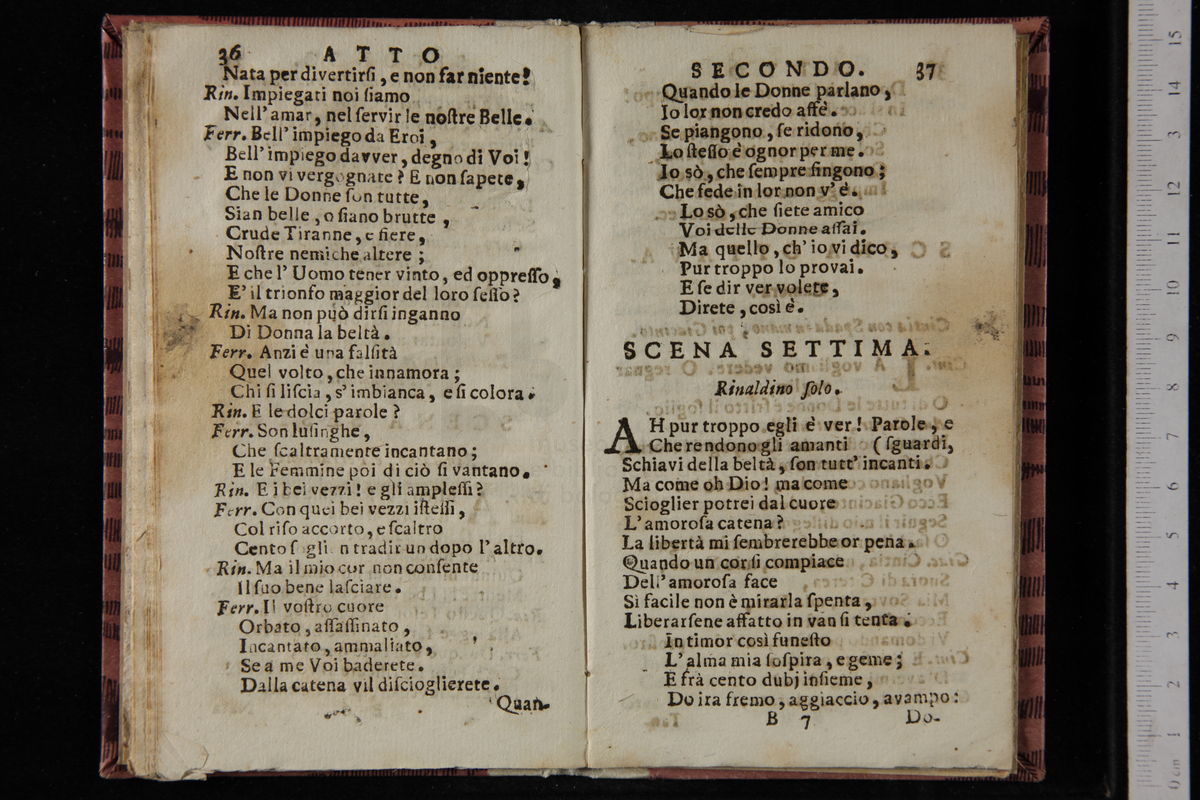 36 ATTO
Nata per divertirſi, e non far niente!
Rin. Impiegati noi ſiamo
Nell' amar, nel ſervir le noſtre Belle.
Ferr. Bell' impiego da Eroi,
Bell' impiego davver, degno di Voi!
E non vi vergognate? E non ſapete,
Che le Donne ſon tutte,
Sian belle, o ſiano brutte,
Crude Tiranne, e fiere,
Noſtre nemiche altere;
E che l' Uomo tener vinto, ed oppreſſo,
E' il trionfo maggior del loro ſeſſo?
Rin. Ma non può dirſi inganno
Di Donna la beltà.
Ferr. Anzi è una falſità
Quel volto, che innamora;
Chi ſi liſcia, s' imbianca, e ſi colora.
Rin. E le dolci parole?
Ferr. Son luſinghe,
Che ſcaltramente incantano;
E le Femmine poi di ciò ſi vantano.
Rin. E i bei vezzi! e gli ampleſſi?
Ferr. Con quei bei vezzi iſteſſi,
Col riſo accorto, e ſcaltro
Cento ſoglion tradir un dopo l' altro.
Rin. Ma il mio cor non conſente
Il ſuo bene laſciare.
Ferr. Il voſtro cuore
Orbato, aſſaſſinato,
Incantato, ammaliato,
Se a me Voi baderete.
Dalla catena vil diſcioglierete.
Quan-
SECONDO. 37
Quando le Donne parlano,
Io lor non credo affè.
Se piangono, ſe ridono,
Lo ſteſſo è ognor per me.
Io sò, che ſempre fingono;
Che fede in lor non v' è.
Lo sò, che ſiete amico
Voi delle Donne aſſai.
Ma quello, ch' io vi dico,
Pur troppo lo provai.
E ſe dir ver volete,
Direte, così è.
SCENA SETTIMA.
Rinaldino ſolo.
AH pur troppo egli è ver! Parole, e
Che rendono gli amanti (ſguardi,
Schiavi della beltà, ſon tutt' incanti.
Ma come oh Dio! ma come
Scioglier potrei dal cuore
L' amoroſa catena?
La libertà mi ſembrerebbe or pena.
Quando un cor ſi compiace
Dell' amoroſa face
Sì facile non è mirarla ſpenta,
Liberarſene affatto in van ſi tenta.
In timor così funeſto
L' alma mia ſoſpira, e geme;
E frà cento dubj inſieme,
Do ira fremo, aggiaccio, avampo:
B 7 Do-